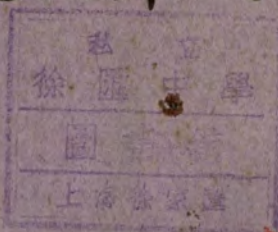 私立
徐匯中學
圖書館
上海徐家匯